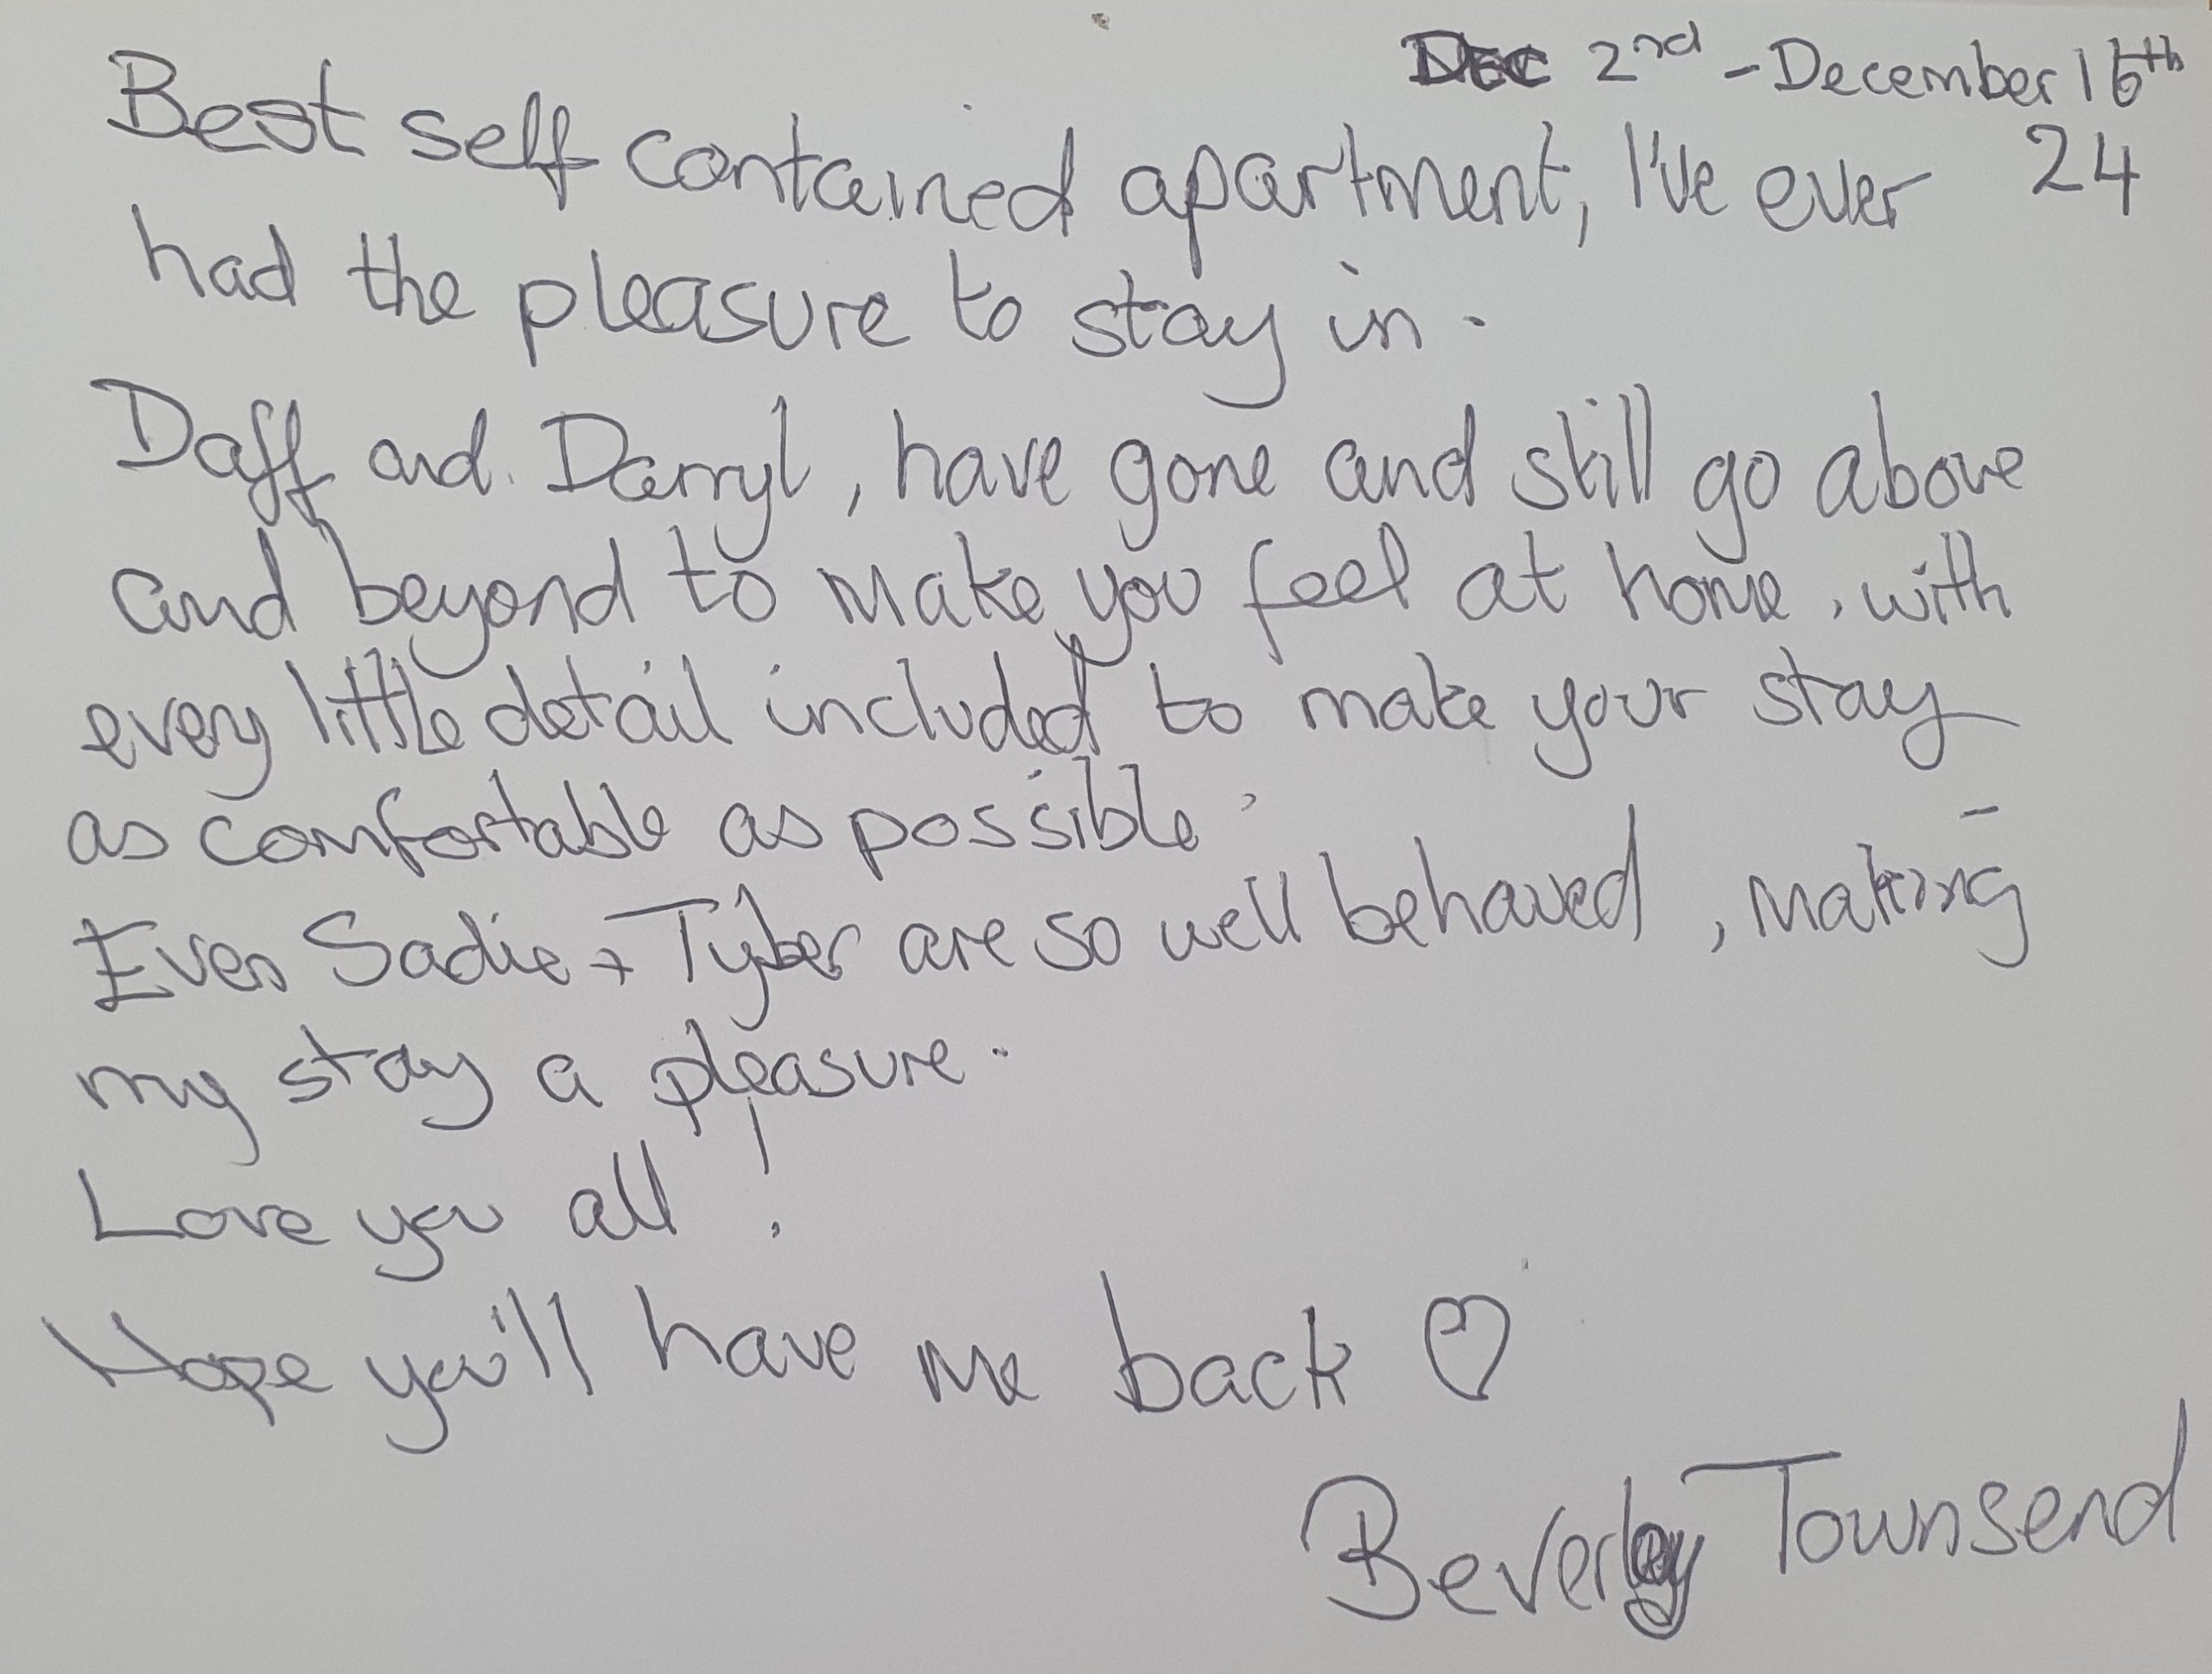 Dec 2nd - December 16th
24
Best self contained apartment, I've ever
had the pleasure to stay in.
Daff and. Darryl, have gone and still go above
and beyond to make you feel at home, with
every little detail included to make your stay
as comfortable as possible.
Even Sadie + Tyber are so well behaved, making
my stay a pleasure.
Love you all!
Hope you'll have me back ♡
Beverley Townsend